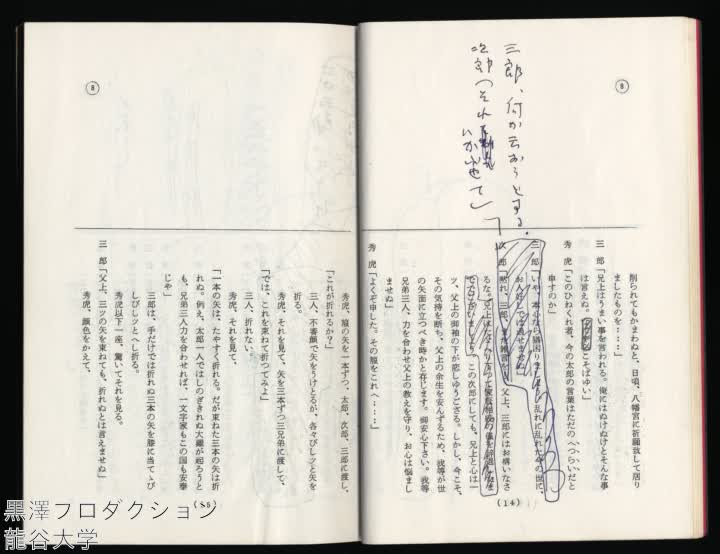 8
三郎、何か云おうとする。
次郎「それ
いかせて」
削られてもかまわぬと、日頃、八幡宮に祈願致して居り
ましたものを……」
三郎「兄上はうまい事を言われる。俺にはぬけぬけとそんな事
は言えぬ。
こそばゆい」
秀虎「このひねくれ者、今の太郎の言葉はただのへつらいだと
申すのか」
三郎「いや、本心なら猶困りまする。乱れに乱れた今の世に、
お人好しでは
次郎「黙れ、三郎、
父上、三郎にはお構いなさ
るな。
この次郎にしても、兄上と心は一
ツ、父上の御袖の下が恋しゅうござる。しかし、今こそ、
その気持を断ち、父上の余生を安んずるため、我等が世
の矢面に立つべき時かと存じます。御安心下さい。我等
兄弟三人、力を合わせ父上の教えを守り、お心は悩まし
ませぬ」
秀虎「よくぞ申した。その箙をこれへ……」
(14)
8
秀虎、箙の矢を一本ずつ、太郎、次郎、三郎に渡し、
「これが折れるか?」
三人、不審顔で矢をうけとるが、各々ぴしツと矢を
折る。
秀虎、それを見て、矢を三本ずつ三兄弟に渡して、
「では、これを束ねて折つてみよ」
三人、折れない。
秀虎、それを見て、
「一本の矢は、たやすく折れる。だが束ねた三本の矢は折
れぬ。例え、太郎一人ではしのぎきれぬ大難が起ろうと
も、兄弟三人力を合わせれば、一文字家もこの国も安泰
じや」
三郎は、手だけでは折れぬ三本の矢を膝に当てゝぴ
しぴしツとへし折る。
秀虎以下一座、驚いてそれを見る。
秀虎、顔色をかえて、
三郎「父上、三ツの矢を束ねても、折れぬとは言えませぬ」
(15)
黒澤プロダクション
龍谷大学